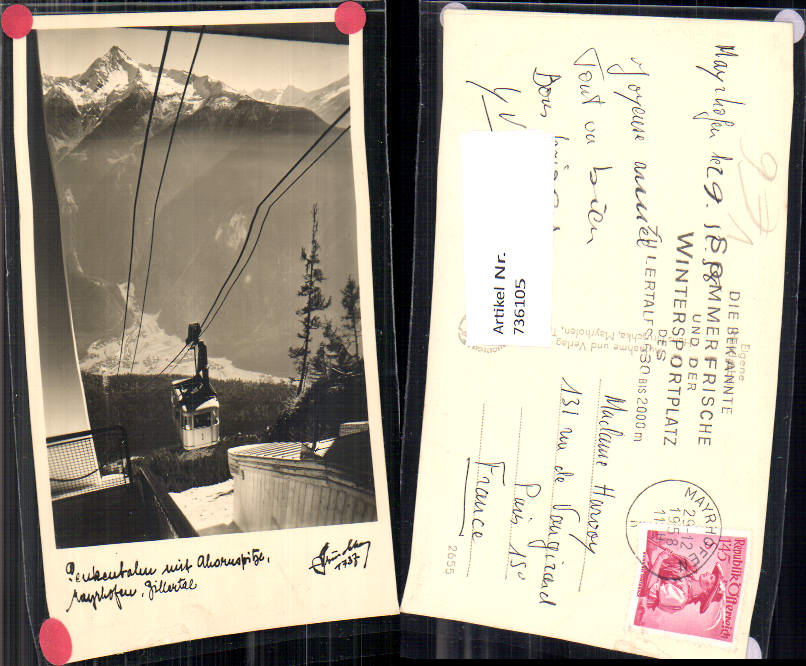 Penkenbahn mit Ahornspitze,
Mayrhofen, Zillertal
1737
Mayrhofen le 29.12.58
Joyeuse année
Tout va bien
Bons
Artikel Nr.
736105
DIE BEKANNTE
SOMMERFRISCHE
UND DER
WINTERSPORTPLATZ
DES
ZILLERTALES
630 BIS 2000 m
Eigene
Aufnahme und Verlag
Mayrhofen,
Madame Harvoy
131 rue de Vaugirard
Paris 15°
France
2655
MAYRHOFEN
29.12
1958
11
Republik Österreich